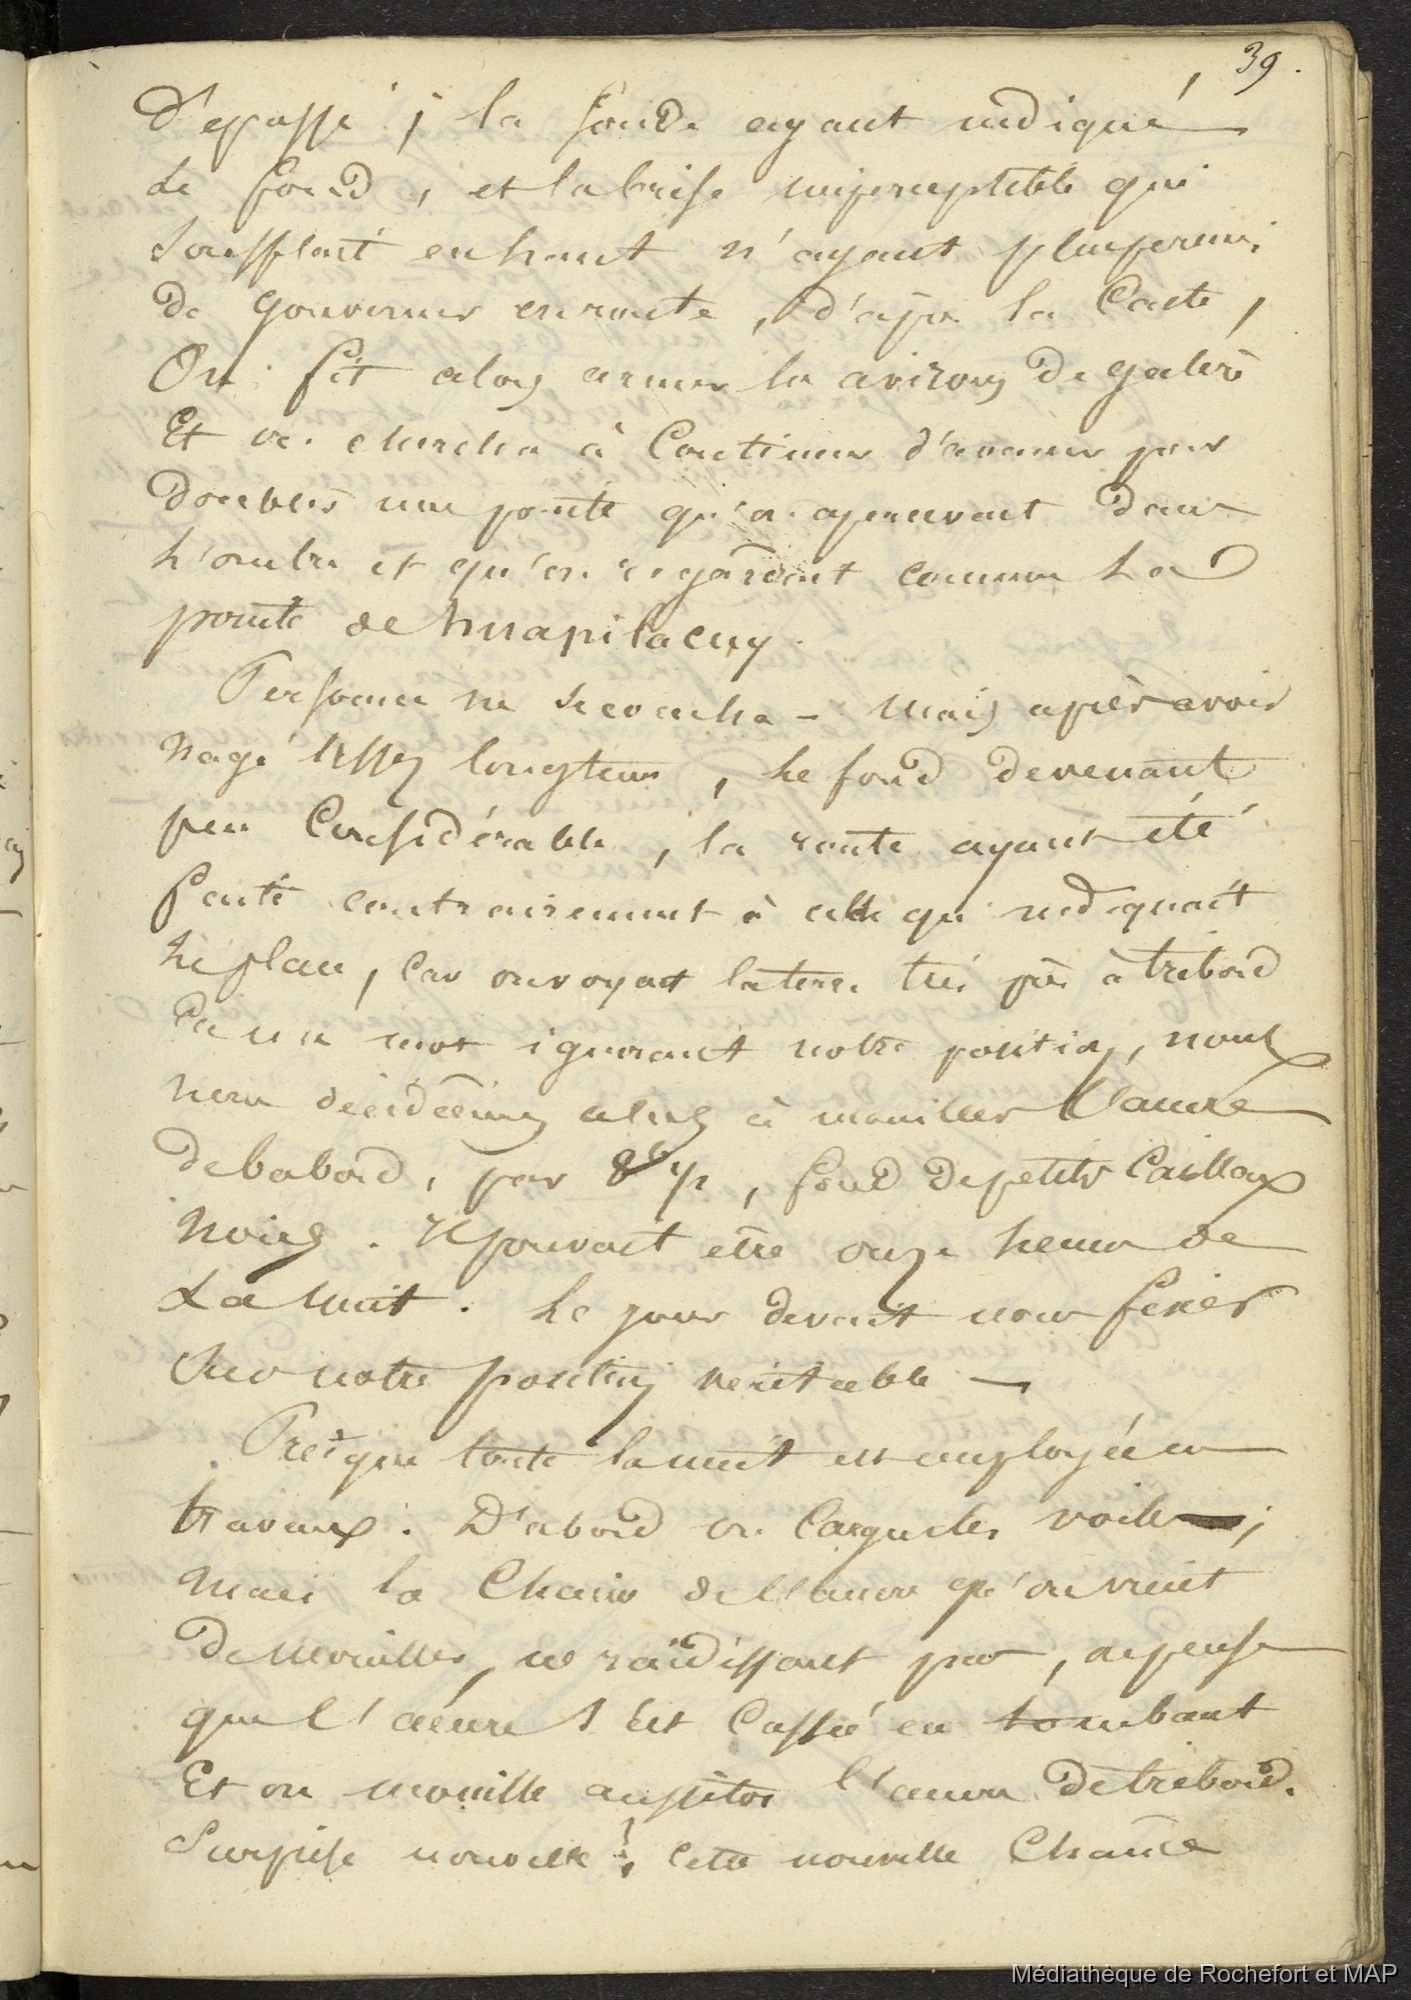 39.
D'epassé ; la sonde ayant indiqué
Le fond, et la brise imperceptible qui
Soufflait en haut n'ayant plus permis
De gouverner en route, d'après la Carte,
On fit alors armer les avirons De galère
Et on chercha à Continuer d'avancer pour
Doubler une pointe qu'on apercevait Dans
L'ombre et qu'on regardait comme La
pointe de huapilacuy.
Personne ne se coucha – Mais après avoir
Nagé assez longtems, Le fond devenant
peu Considérable, la route ayant été
faite contrairement à celle qu'indiquait
Le plan, Car on voyait la terre très près à tribord
En un mot ignorant notre position, nous
nous décidâmes alors à mouiller l'ancre
De babord, par , fond De petits Cailloux
Noirs. Il pouvait être onze heures de
La Nuit. Le jour devait nous fixer
Sur notre position véritable —
Presque toute la nuit est employée en
travaux. D'abord on Cargue les voiles ;
Mais la Chaine de l'ancre qu'on vient
De Mouiller, ne raidissant pas, on pense
que l'ancre s'est Cassée en tombant
Et on mouille aussitot l'ancre De tribord.
Surprise nouvelle ! Cette nouvelle Chaine
Médiathèque de Rochefort et MAP